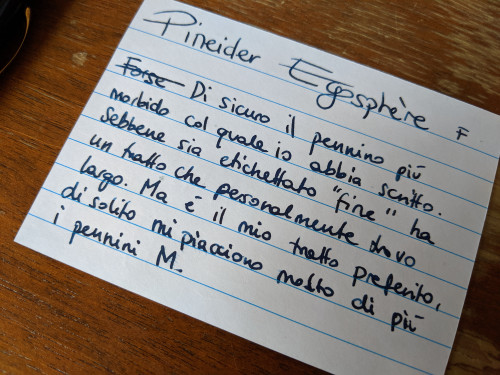 Pineider Egosphère F
Forse Di sicuro il pennino più
morbido col quale io abbia scritto.
Sebbene sia etichettato "fine" ha
un tratto che personalmente trovo
largo. Ma è il mio tratto preferito,
di solito mi piacciono molto di più
i pennini M.